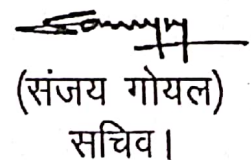 (संजय गोयल)
सचिव।